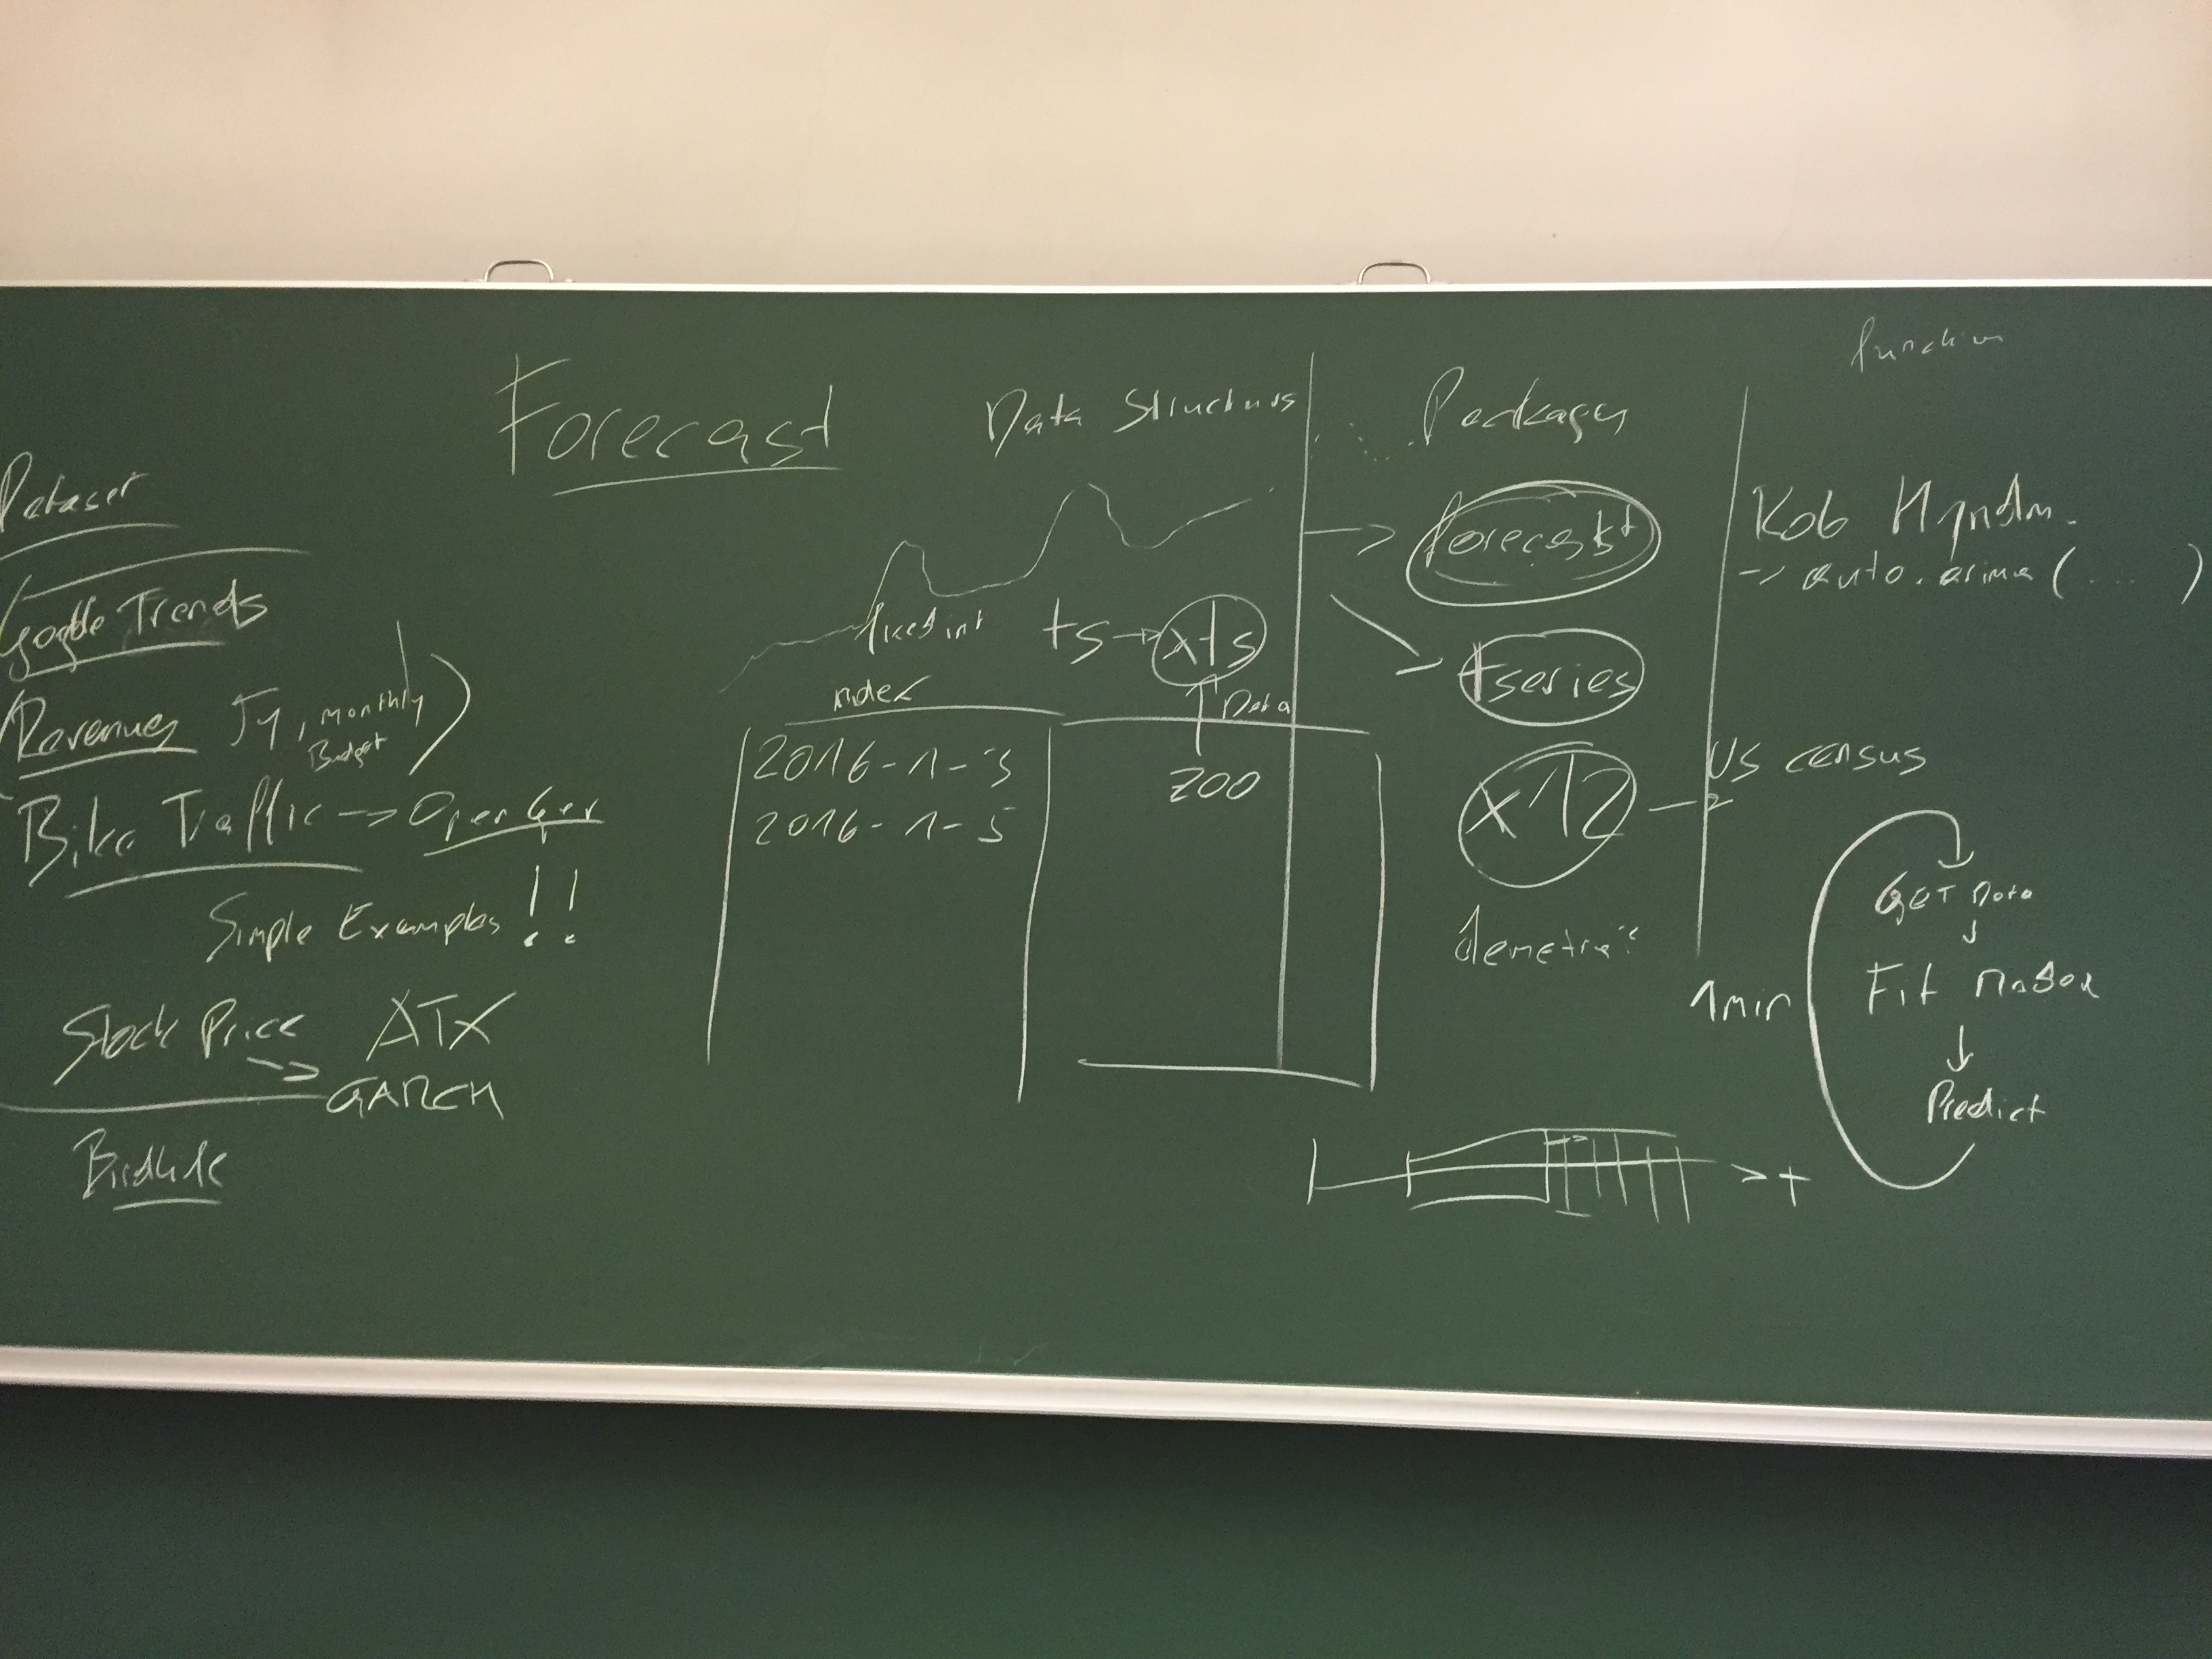 Forecast
Dataset
Google Trends
Revenues 5y, monthly
Budget
Bike Traffic -> Open Gov
Simple Examples !!
Stock Price ATX
-> GARCH
Data Structures
fixed int
ts -> xts
index
Data
2016-1-3
2016-1-5
zoo
Packages
forecast
tseries
x12
demetra
function
Rob Hyndm.
-> auto.arima (.... )
US census
1min
GET Data
Fit Model
Predict
t